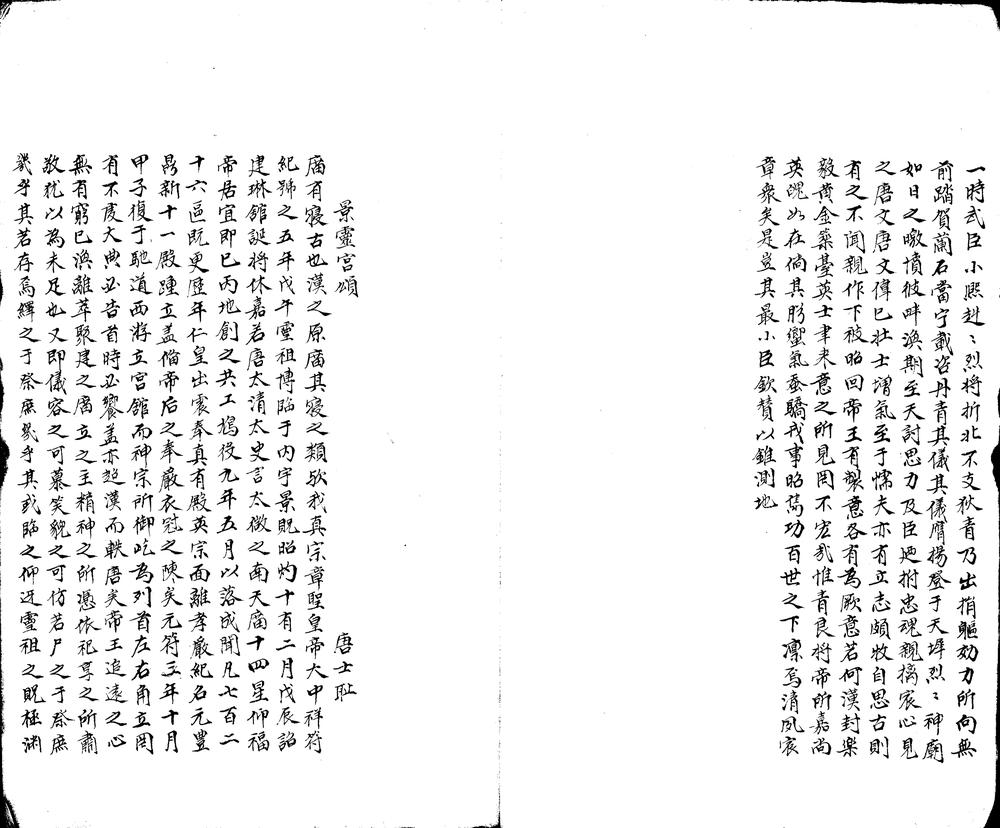 一時武臣小熙赳〻烈将折北不支狄青乃出捎軀効力所向無
前踏賀蘭石當宁載咨丹青其儀其儀膺揚登于天墀烈〻神廟
如日之暾憤彼畔渙期至天討思力及臣廼拊忠魂親摛宸心見
之唐文唐文偉已壮士増氣至于懦夫亦有立志頗牧自思古則
有之不闻親作下被昭回帝王有製意各有為厥意若何漢封樂
毅黄金築䑓英士聿来意之所見罔不宏哉惟青良将帝所嘉尚
英魄如在倘其肹蠁氣吞驕戎事昭䔍功百世之下凛焉清風宸
章衆矣是豈其最小臣欽賛以錐測地
景靈宫頌
唐士耻
廟有寝古也漢之原廟其寝之類歟我真宗章聖皇帝大中祥符
紀號之五年戊午靈祖博臨于内宇景貺昭灼十有二月戊辰詔
建琳館誕将休嘉若唐太清太史言太微之南天廟十四星仰福
帝居宜即巳丙地創之共工鳩役九年五月以落成聞凡七百二
十六區既更歴年仁皇出震奉真有殿英宗面離孝嚴紀名元豊
昜新十一殿踵立盖俻帝后之奉嚴衣冠之陳矣元符三年十月
甲子復于馳道西游立宫館而神宗所御屹為列首左右角立罔
有不虔大典必告首時必饗盖亦超漢而軼唐矣帝王追遠之心
無有窮已渙離萃聚建之廟立之主精神之所憑依祀享之所肅
敬犹以為未足也又即儀容之可慕笑貌之可仿若尸之于祭庶
㡬乎其若存焉繹之于祭庶㡬乎其或臨之仰迓靈祖之貺極渊